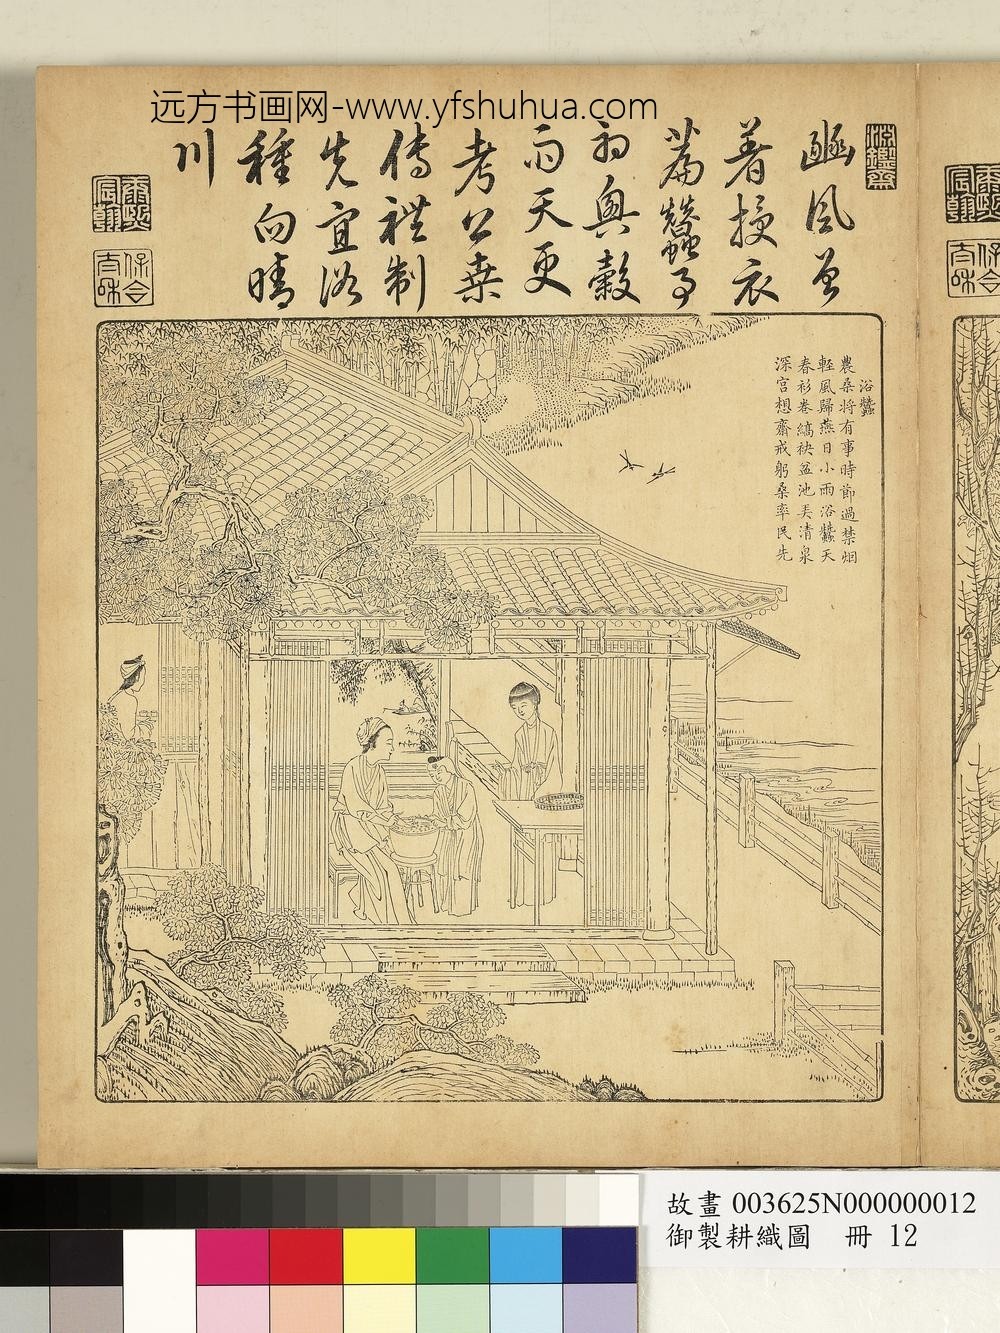 远方书画网-www.yfshuhua.com
淵鑒齋
豳風曾
著授衣
篇蠶事
初興穀
雨天更
考公桑
傳禮制
先宜浴
種向晴
川
康熙宸翰
保合太和
浴蠶
農桑將有事時節過禁烟
輕風歸燕日小雨浴蠶天
春衫卷縞袂盆池弄清泉
深宮想齋戒躬桑率民先
康熙宸翰
保合太和
故畫 003625N000000012
御製耕織圖 冊 12